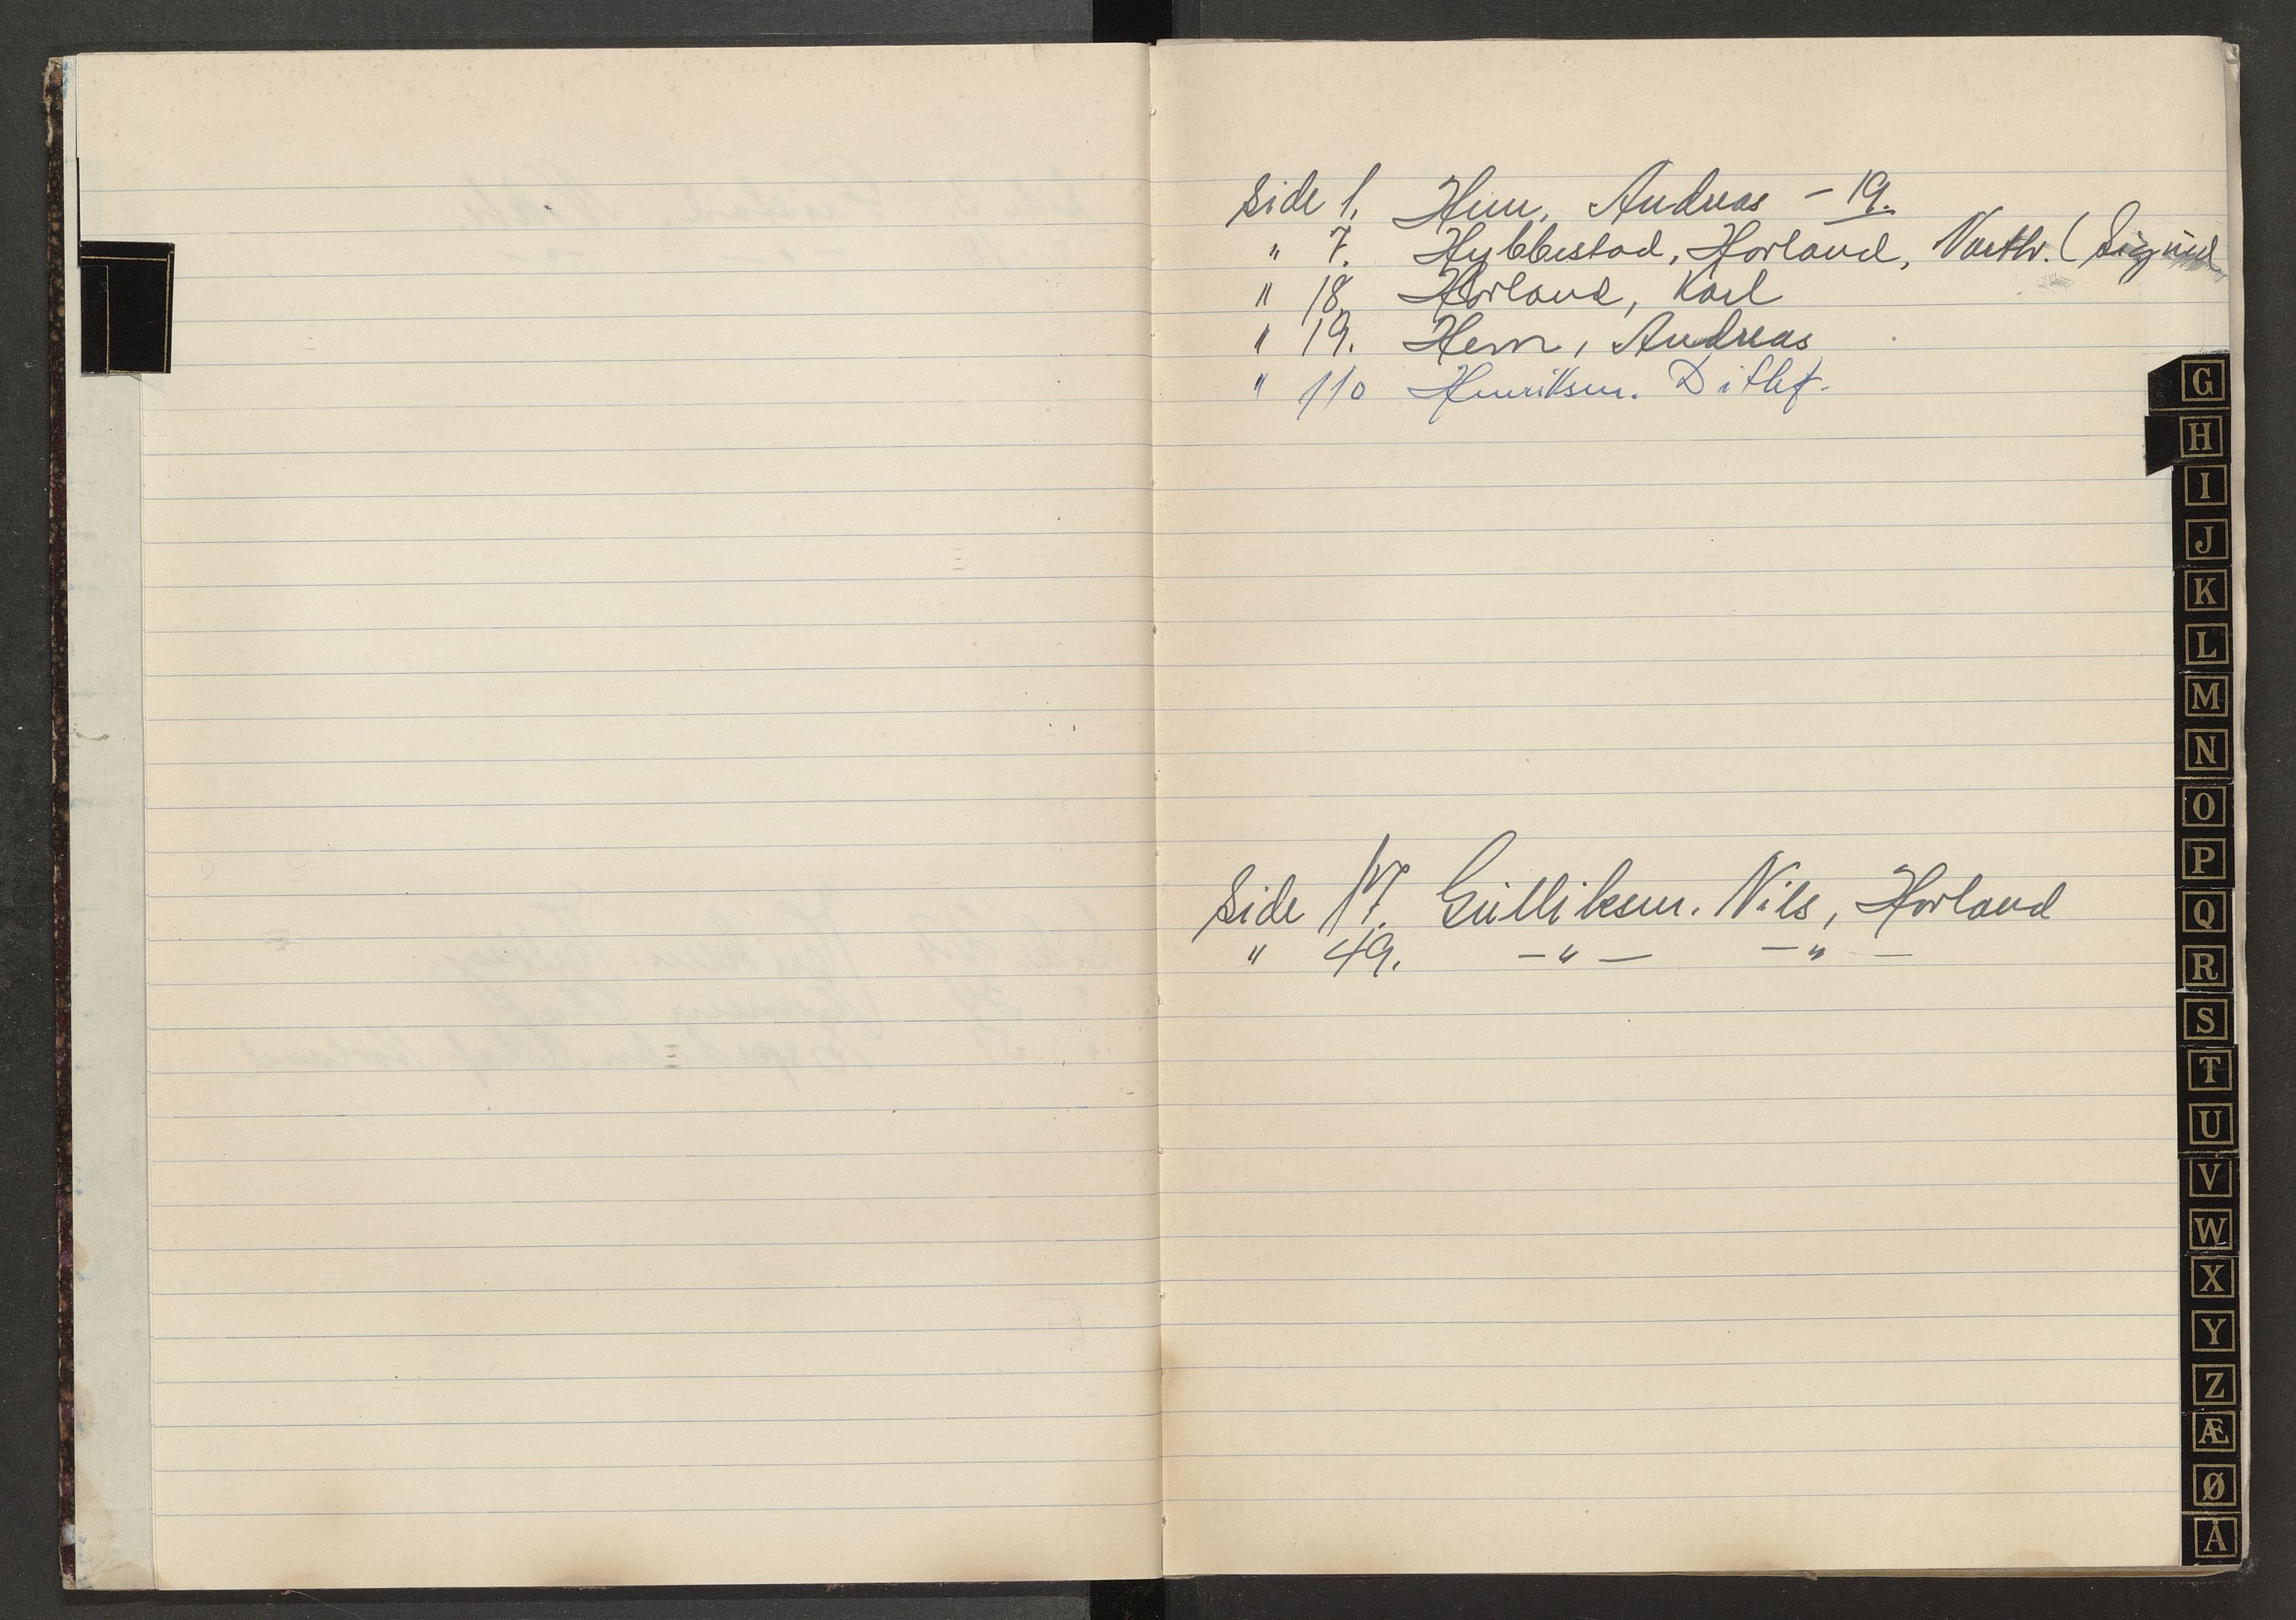 Side 1. Hem, Andreas - 19.
" 7. Hybbestad, Horland, Vestbr. (Sigurd
" 18. Horland, Karl
" 19. Hem, Andreas
" 110 Henriksen. Ditlef.
Side 17. Gulliksen. Nils, Horland
" 49. -"- -"-
G
H
I
J
K
L
M
N
O
P
Q
R
S
T
U
V
W
X
Y
Z
Æ
Ø
Å